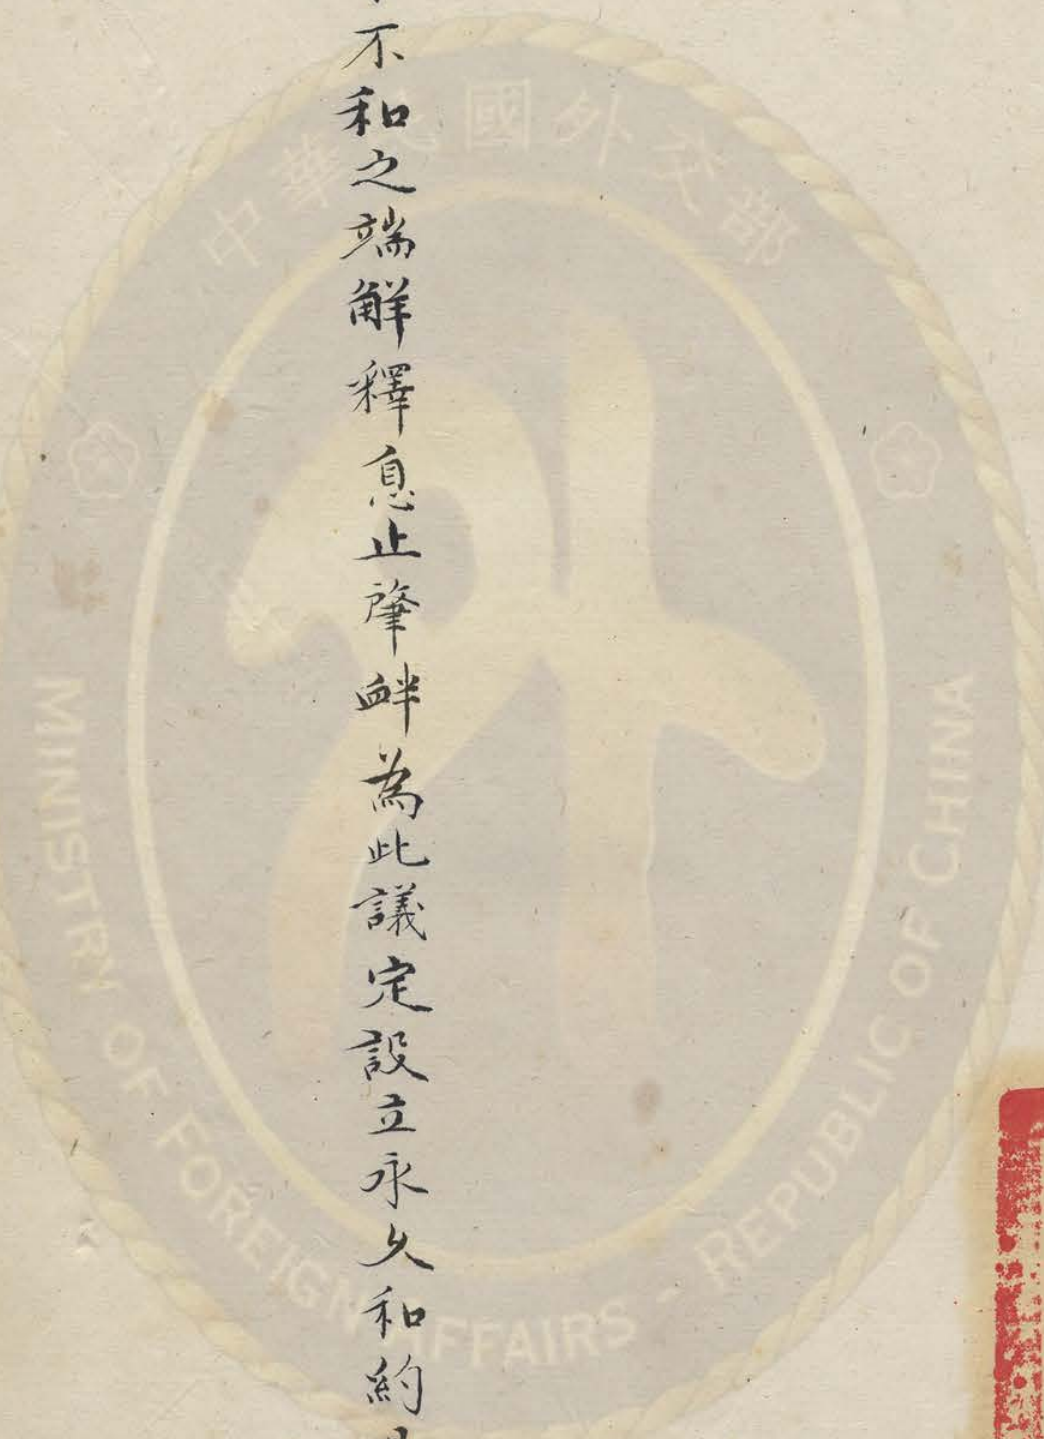 不和之端解釋息止肇衅為此議定設立永久和約
中華民國外交部
MINISTRY OF FOREIGN AFFAIRS - REPUBLIC OF CHINA